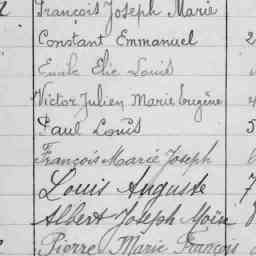 François Joseph Marie
Constant Emmanuel 2
Emile Elie Louis
Victor Julien Marie Eugène 4
Paul Louis 5
François Marie Joseph 6
Louis Auguste 7
Albert Joseph 8
Pierre Marie François